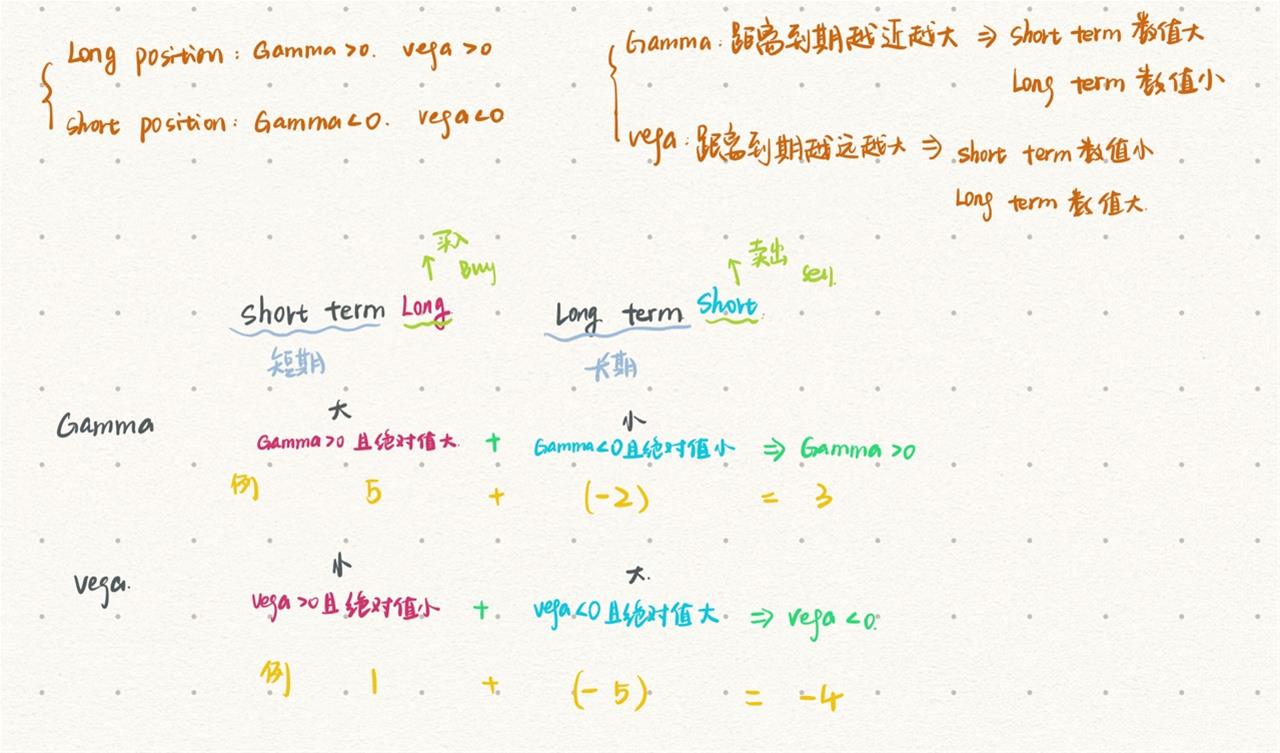 Long position: Gamma >0. vega >0
short position: Gamma<0. vega<0
Gamma: 距离到期越近越大 ⇒ short term 数值大
Long term 数值小
vega: 距离到期越远越大 ⇒ short term 数值小
Long term 数值大.
买入
Buy
卖出
sell.
short term Long
Long term short.
短期
长期
大
小
Gamma
Gamma>0 且绝对值大. + Gamma<0且绝对值小 ⇒ Gamma >0
例 5 + (-2) = 3
小
大.
vega.
vega >0且绝对值小 + vega<0且绝对值大. ⇒ vega <0.
例 1 + (-5) = -4